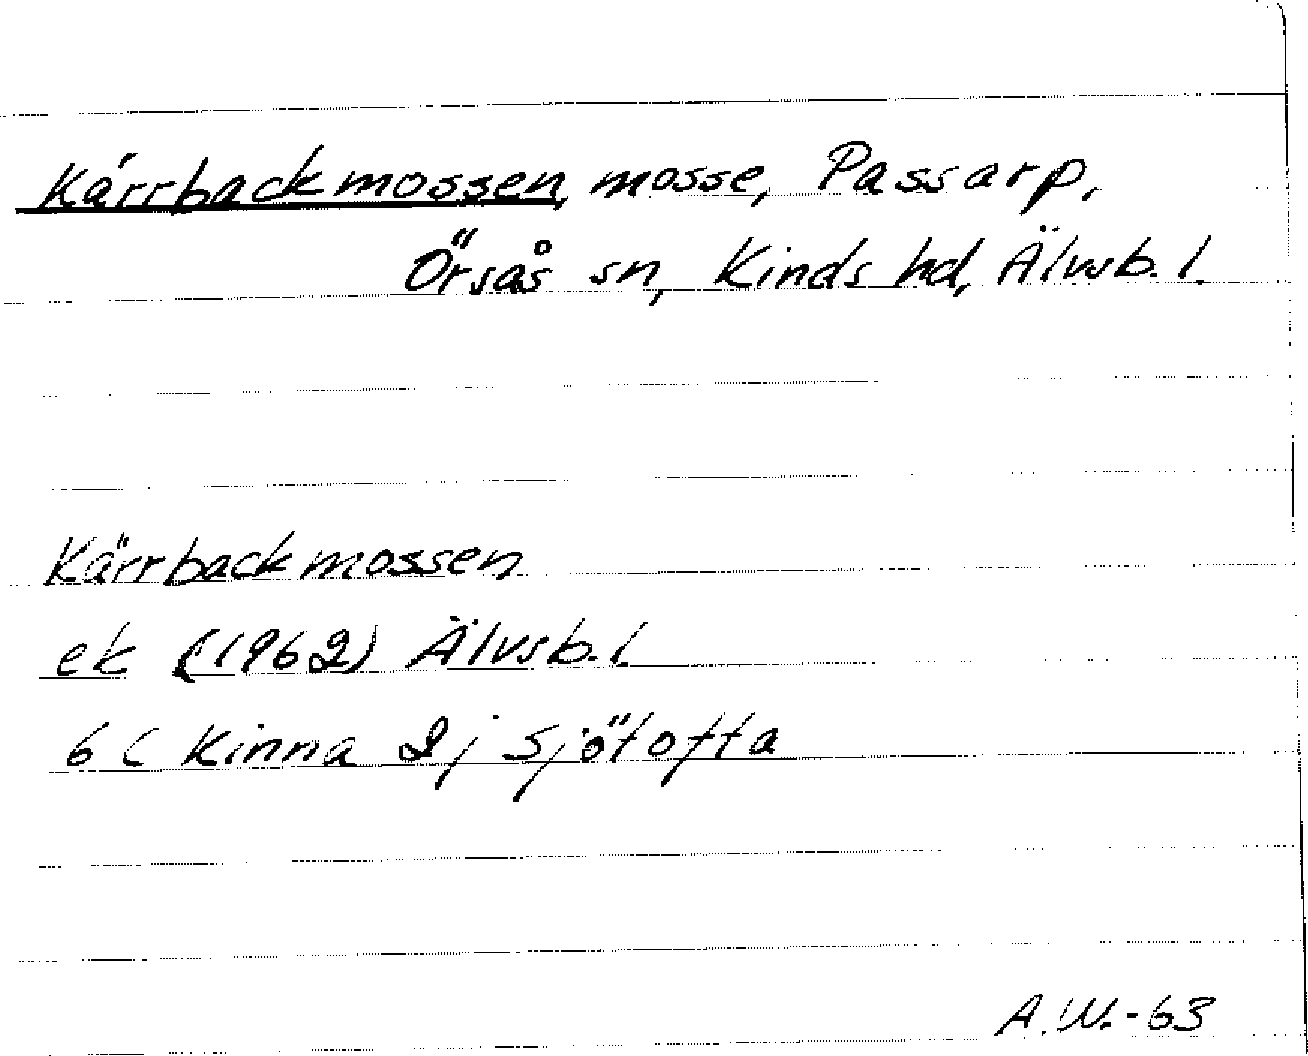 Kärrbackmossen, mosse, Passarp,
Örsås sn, Kinds hd, Älvsb. l.
Kärrbackmossen
ek (1962) Älvsb. l.
6 C Kinna 2j Sjötofta
A.W.-63